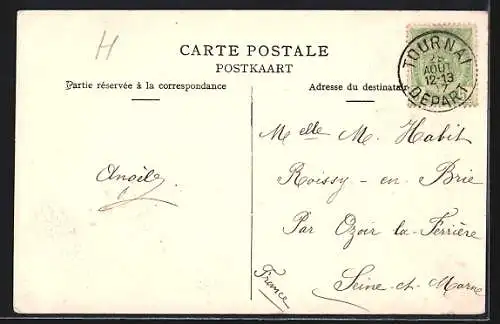 H
CARTE POSTALE
POSTKAART
Partie réservée à la correspondance
Adresse du destinatair
TOURNAI
28
AOUT
12-13
7
DEPART
Melle M. Habit
Roissy - en - Brie
Par Ozoir la-Ferrière
Seine-et-Marne
France
Angèle